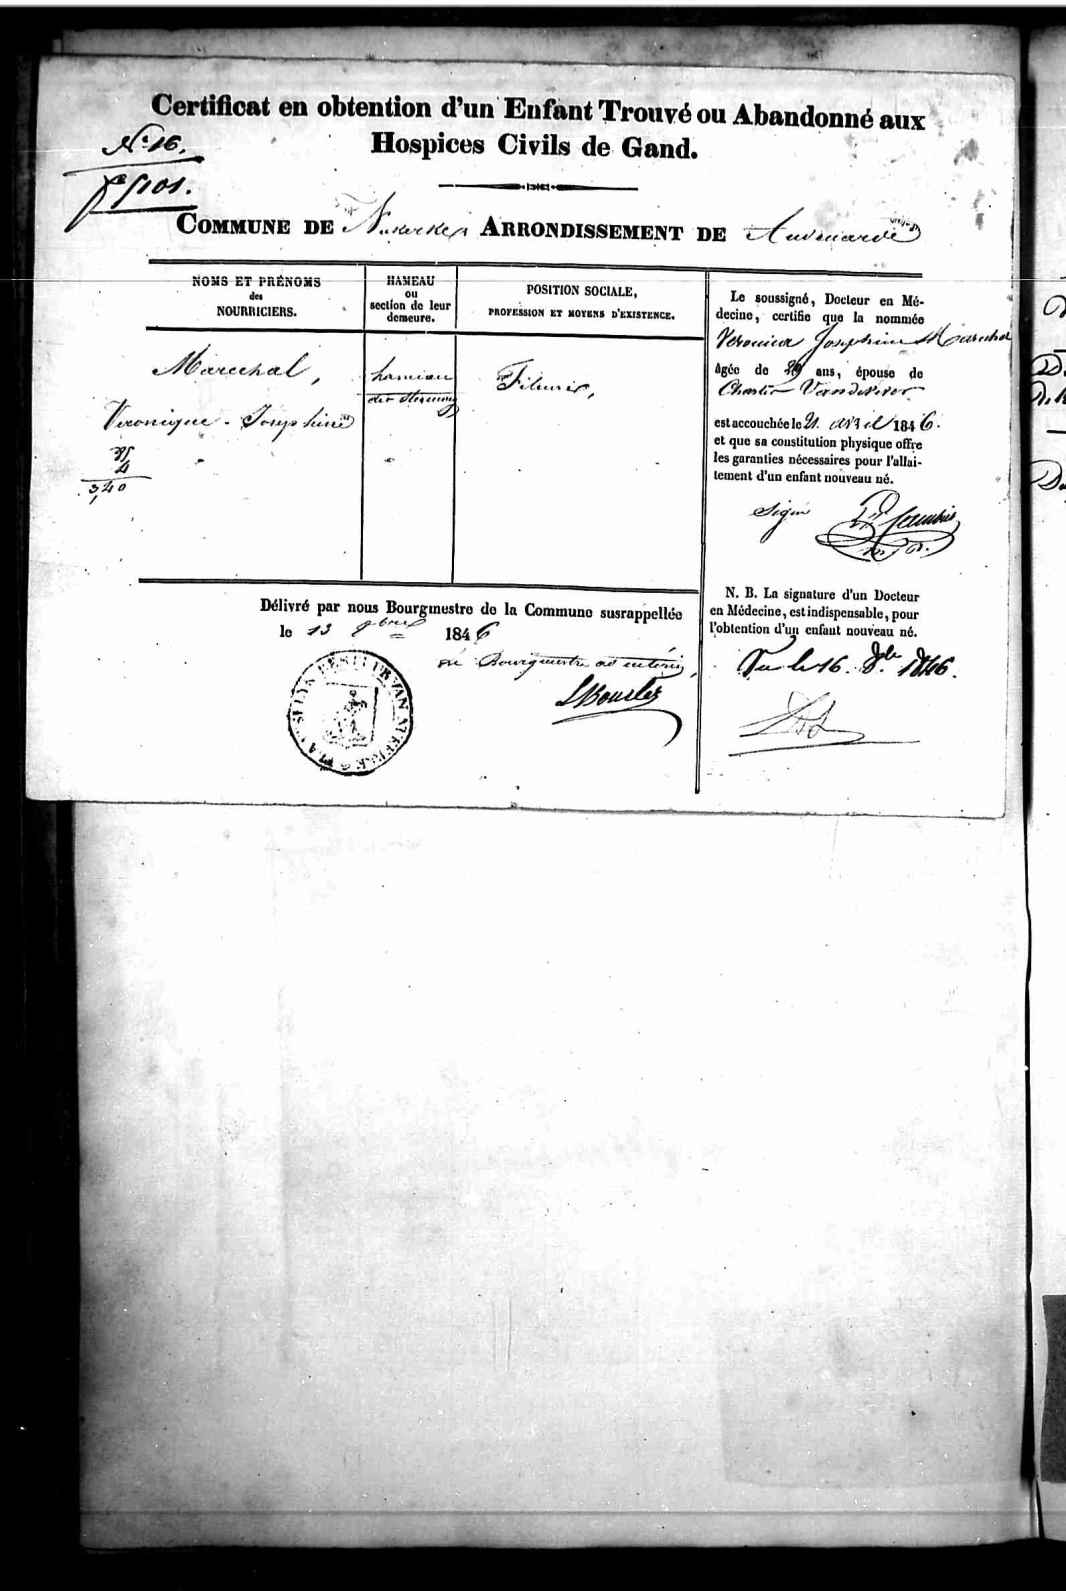 Certificat en obtention d'un Enfant Trouvé ou Abandonné aux
Hospices Civils de Gand.
N.° 16.
COMMUNE DE Nukerke ARRONDISSEMENT DE Audenarde
NOMS ET PRÉNOMS
des
NOURRICIERS.
HAMEAU
ou
section de leur
demeure.
POSITION SOCIALE,
PROFESSION ET MOYENS D'EXISTENCE.
Marechal,
Veronique-Josephine
3,40
hameau
Fileuse,
Le soussigné, Docteur en Mé-
decine, certifie que la nommée
Veronica Josephine Marechal
âgée de ans, épouse de
Charles Vandevever
est accouchée le 21 avril 1846.
et que sa constitution physique offre
les garanties nécessaires pour l'allai-
tement d'un enfant nouveau né.
Signé
N. B. La signature d'un Docteur
en Médecine, est indispensable, pour
l'obtention d'un enfant nouveau né.
Vu le 16. 8bre 1846.
Délivré par nous Bourgmestre de la Commune susrappellée
le 13 8bre 1846
Bourgmestre ad interim,